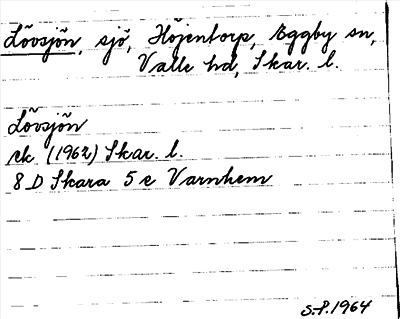 Lövsjön, sjö, Höjentorp, Eggby sn,
Valle hd, Skar. l.
Lövsjön
ek. (1962) Skar. l.
8 D Skara 5 e Varnhem
S.P. 1964